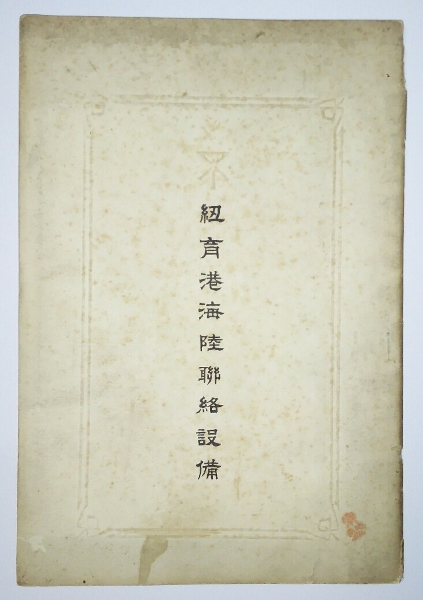 紐育港海陸聯絡設備